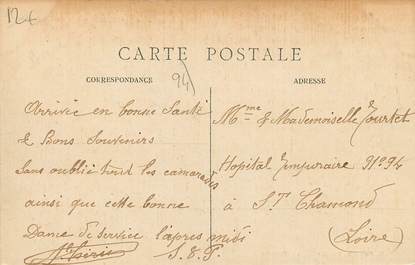 12 €
CARTE POSTALE
CORRESPONDANCE
94
ADRESSE
Arrivée en bonne Santé
& Bons Souvenirs
Sans oublié tout les camarades
ainsi que cette bonne
Dame de service l'apres midi
S. E. P.
Mme & Mademoiselle Tourtet
Hopital Temporaire No 94
à St Chamond
(Loire)